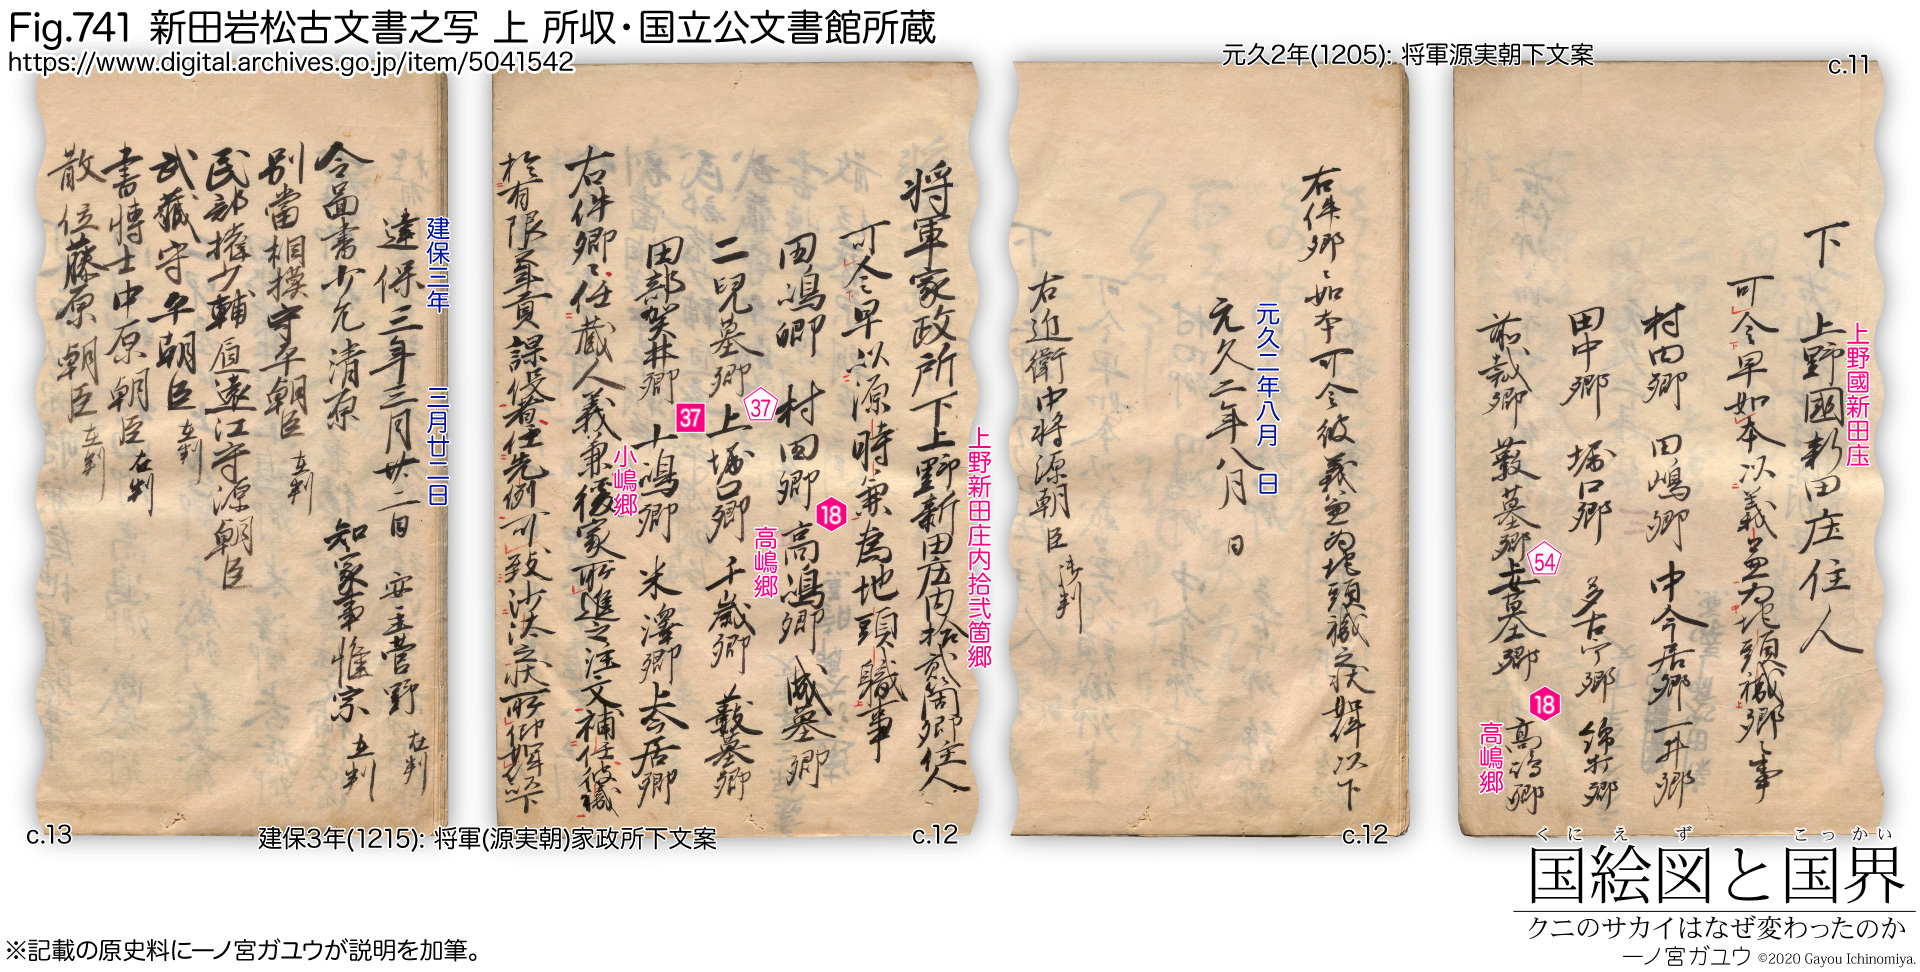 Fig.741 新田岩松古文書之写 上 所収・国立公文書館所蔵
https://www.digital.archives.go.jp/item/5041542
元久2年(1205): 将軍源実朝下文案
c.11
下 上野國新田庄住人
上野國新田庄
可令早如本以義兼為地頭職郷〻事
村田郷 田嶋郷 中今居郷 一井郷
田中郷 堀口郷 多古宇郷 綿打郷
菽墓郷 上女墓郷 高嶋郷
54
18
高嶋郷
右件郷〻如本可令彼義兼為地頭職之状如件以下
元久二年八月 日
元久二年八月 日
右近衛中将源朝臣 御判
c.12
将軍家政所下上野新田庄内拾弐箇郷住人
上野新田庄内拾弐箇郷
可令早以源時兼為地頭職事
田嶋郷 村田郷 高嶋郷 成墓郷
18
高嶋郷
二児墓郷 上堀口郷 千歳郷 菽墓郷
37
田部賀井郷 小嶋郷 米澤郷 上今居郷
37
小嶋郷
右件郷〻任蔵人義兼後家所進之注文補任彼職
於有限年貢課役者任先例可致沙汰之状所仰如件以下
c.12
建保3年(1215): 将軍(源実朝)家政所下文案
建保三年三月廿二日 安主菅野 在判
建保三年 三月廿二日
令図書少允清原 知家事惟宗 在判
別當相模守平朝臣 在判
民部権少輔 遠江守源朝臣
武蔵守平朝臣 在判
書博士中原朝臣 在判
散位藤原朝臣 在判
c.13
くにえずとこっかい
国絵図と国界
クニのサカイはなぜ変わったのか
一ノ宮ガユウ ©2020 Gayou Ichinomiya.
※記載の原史料に一ノ宮ガユウが説明を加筆。